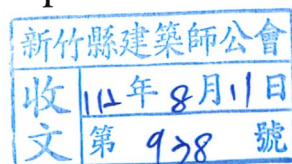 新竹縣建築師公會
收文
112年8月11日
第 928 號